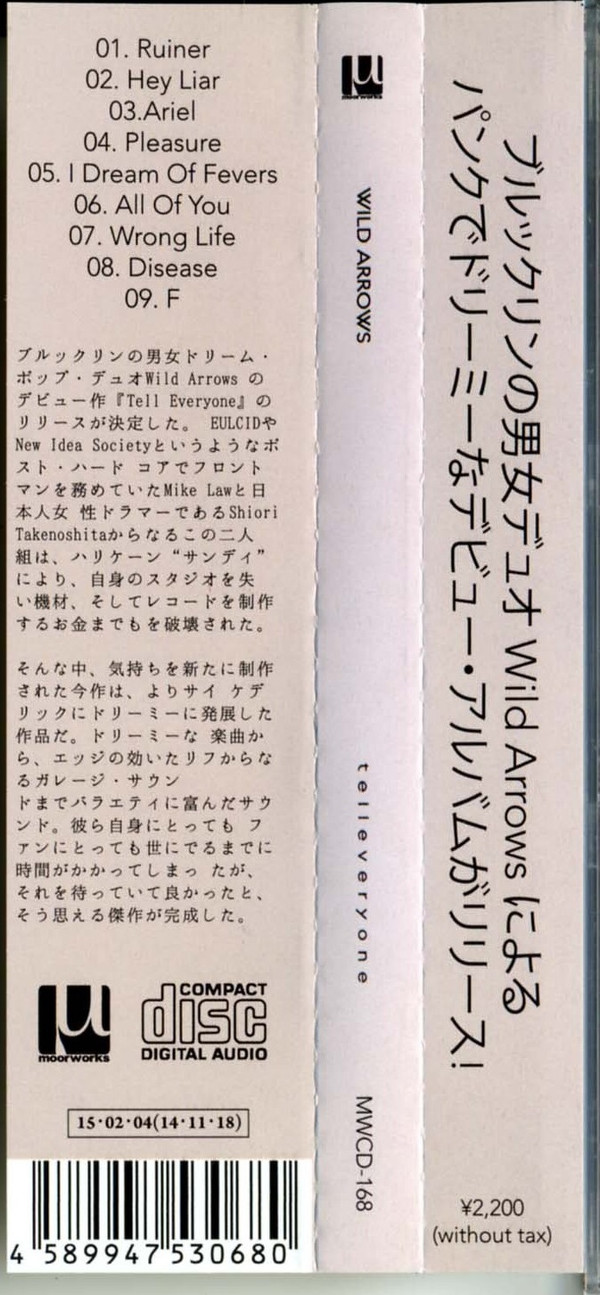 01. Ruiner
02. Hey Liar
03.Ariel
04. Pleasure
05. I Dream Of Fevers
06. All Of You
07. Wrong Life
08. Disease
09. F
ブルックリンの男女ドリーム・
ポップ・デュオWild Arrows の
デビュー作『Tell Everyone』の
リリースが決定した。 EULCIDや
New Idea Societyというようなポ
スト・ハード コアでフロント
マンを務めていたMike Lawと日
本人女 性ドラマーであるShiori
Takenoshitaからなるこの二人
組は、ハリケーン “サンディ”
により、自身のスタジオを失
い機材、そしてレコードを制作
するお金までもを破壊された。
そんな中、気持ちを新たに制作
された今作は、よりサイ ケデ
リックにドリーミーに発展した
作品だ。ドリーミーな 楽曲か
ら、エッジの効いたリフからな
るガレージ・サウン
ドまでバラエティに富んだサウ
ンド。彼ら自身にとっても フ
ァンにとっても世にでるまでに
時間がかかってしまっ たが、
それを待っていて良かったと、
そう思える傑作が完成した。
moorworks
COMPACT
disc
DIGITAL AUDIO
15·02·04(14·11·18)
4 589947 530680
moorworks
WILD ARROWS
telleveryone
MWCD-168
ブルックリンの男女デュオ Wild Arrows による
パンクでドリーミーなデビュー・アルバムがリリース!
¥2,200
(without tax)